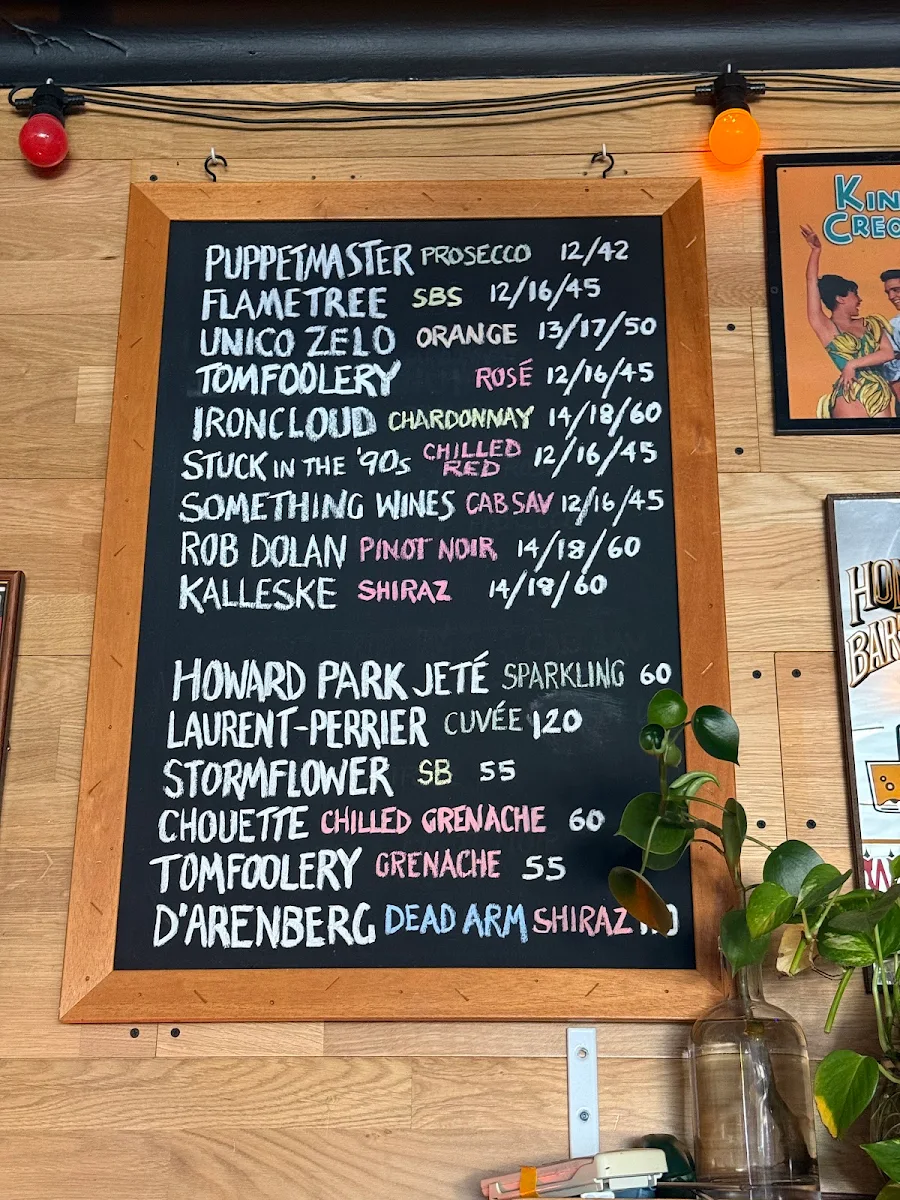 PUPPETMASTER PROSECCO 12/42
FLAMETREE SBS 12/16/45
UNICO ZELO ORANGE 13/17/50
TOMFOOLERY ROSÉ 12/16/45
IRONCLOUD CHARDONNAY 14/18/60
STUCK IN THE '90s CHILLED RED 12/16/45
SOMETHING WINES CAB SAV 12/16/45
ROB DOLAN PINOT NOIR 14/18/60
KALLESKE SHIRAZ 14/18/60
HOWARD PARK JETÉ SPARKLING 60
LAURENT-PERRIER CUVÉE 120
STORMFLOWER SB 55
CHOUETTE CHILLED GRENACHE 60
TOMFOOLERY GRENACHE 55
D'ARENBERG DEAD ARM SHIRAZ
KIN
CREO